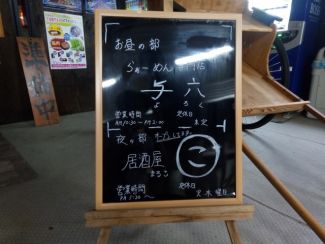 準備中
お昼の部
らぁーめん専門店
与六
よ ろく
営業時間 定休日
AM11:30~PM2:00 未定
夜の部
居酒屋 まるこ
こ
営業時間 定休日
PM5:30~ 火・水曜日